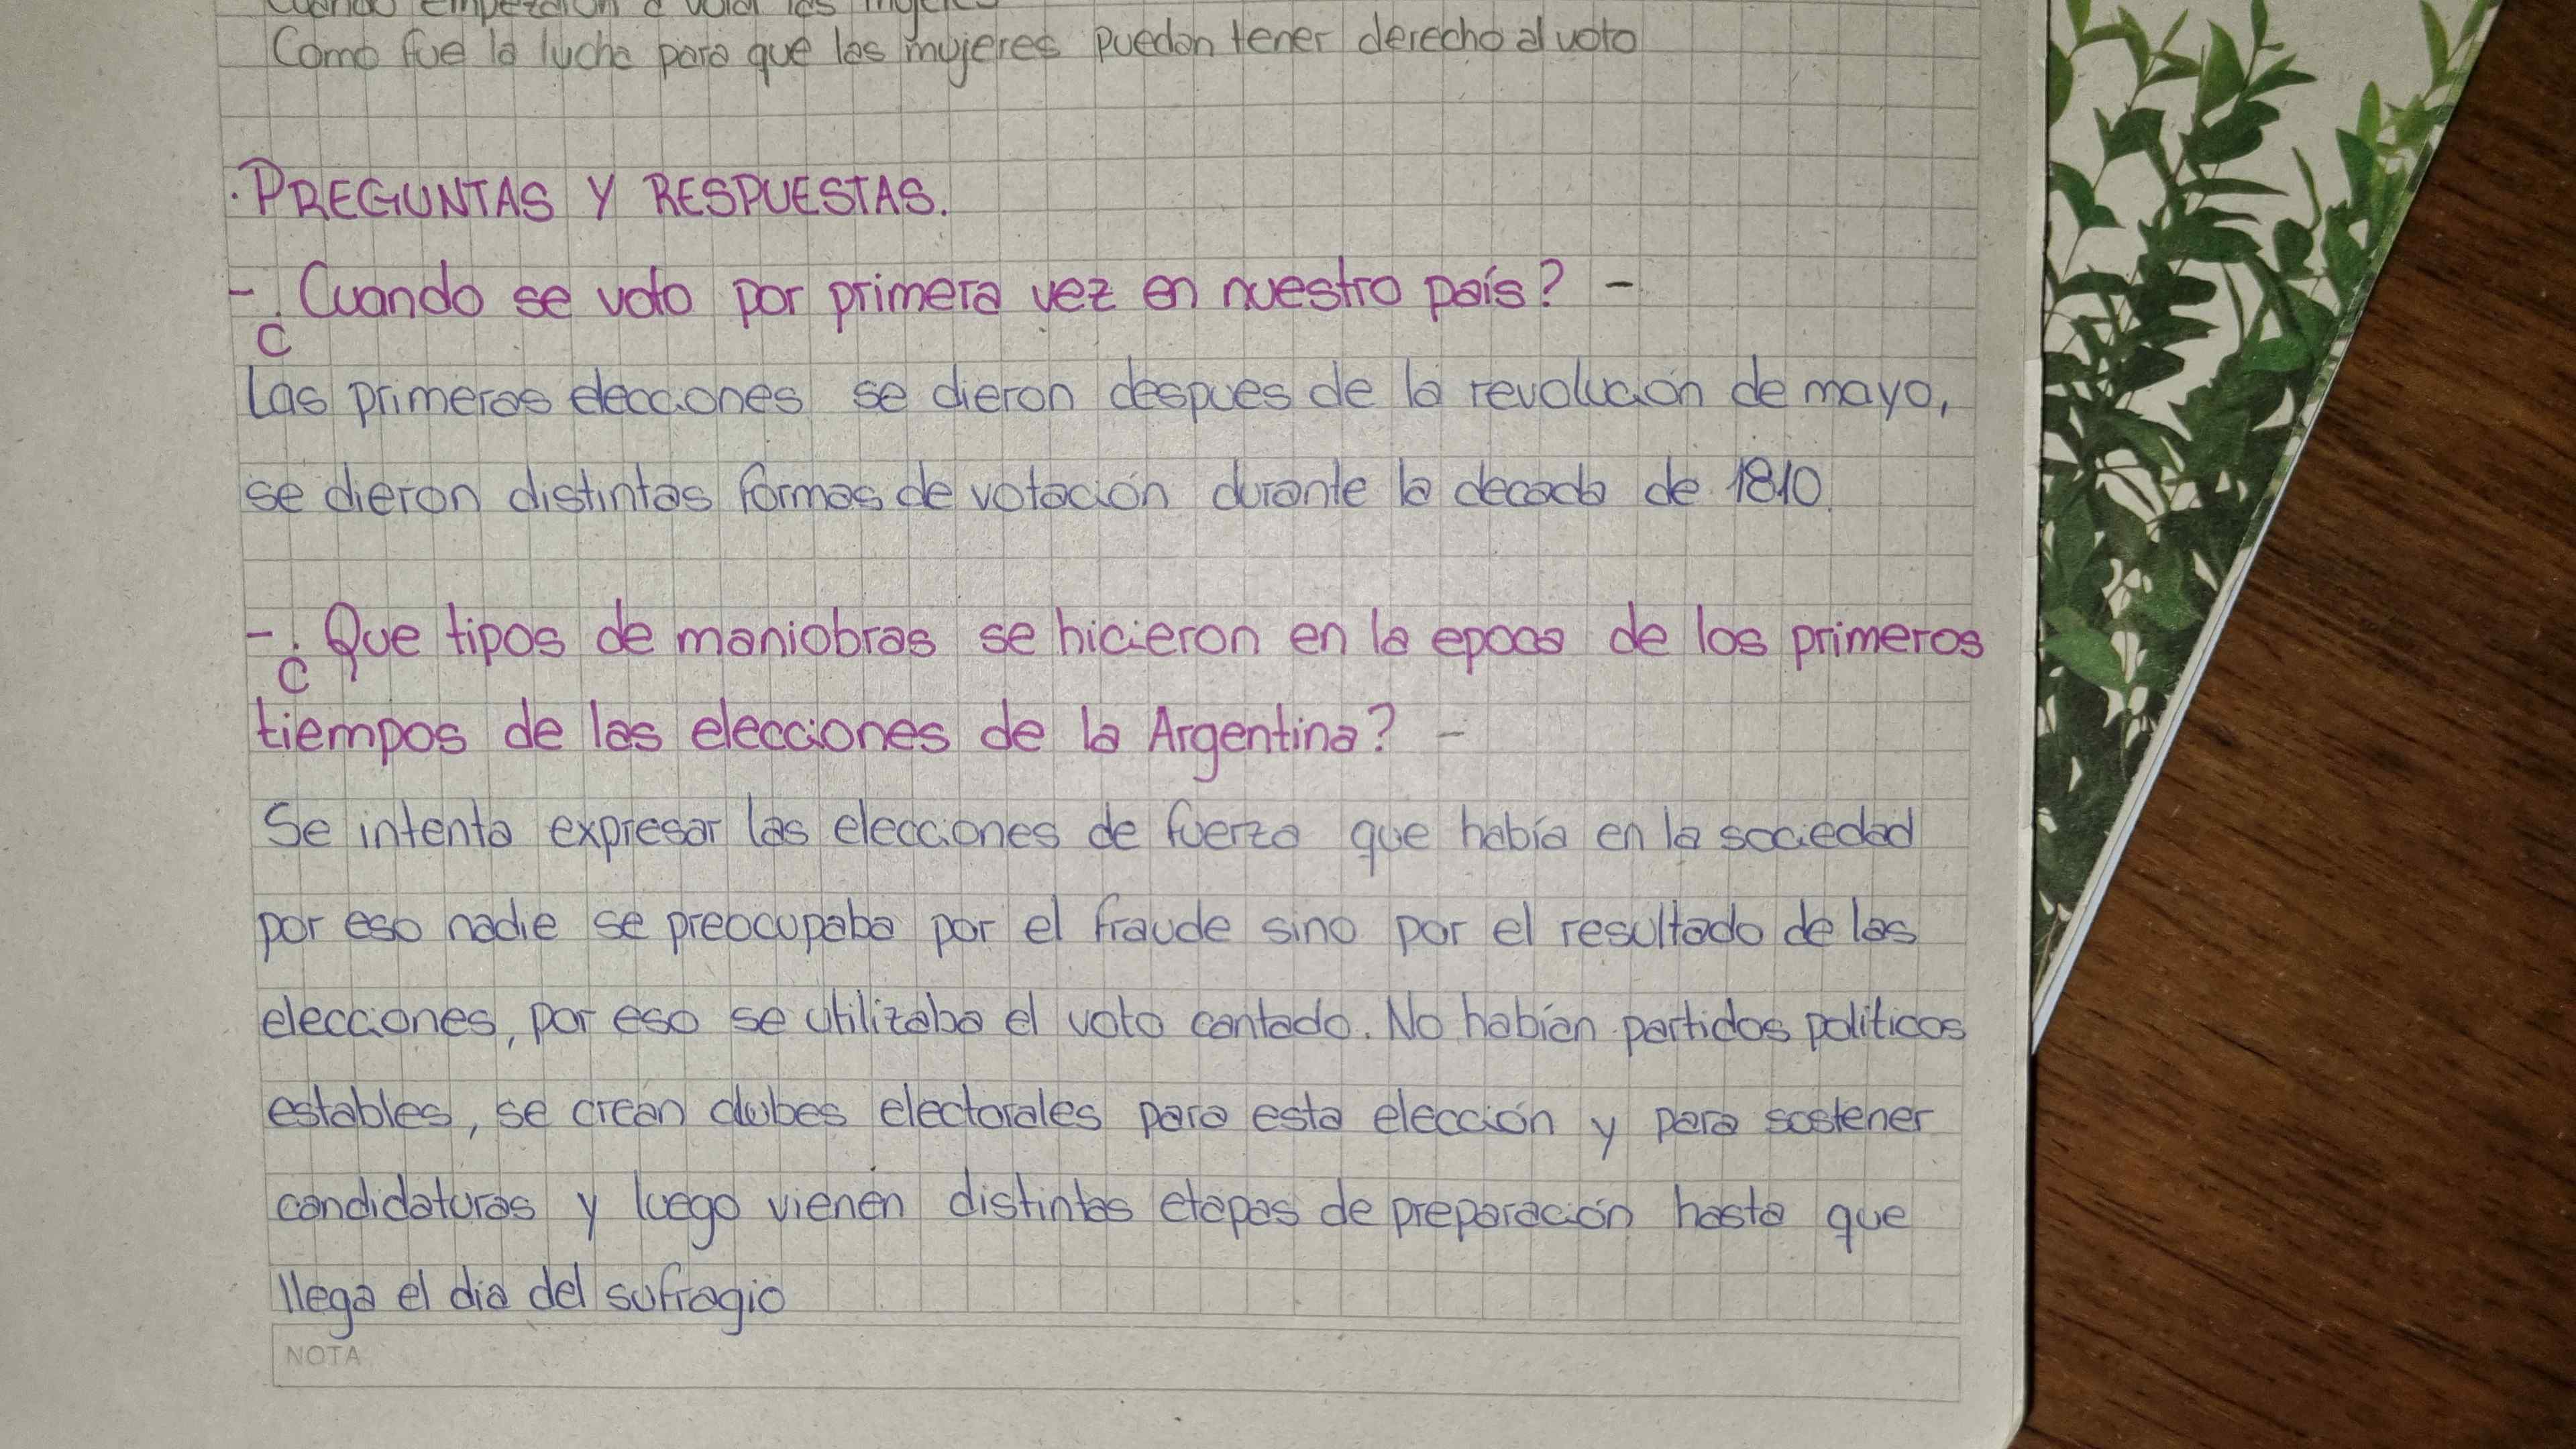 Cuando empezaron a votar las mujeres
Como fue la lucha para que las mujeres puedan tener derecho al voto
· PREGUNTAS Y RESPUESTAS.
- ¿Cuando se voto por primera vez en nuestro país? -
Las primeras elecciones se dieron despues de la revolución de mayo,
se dieron distintas formas de votación durante la decada de 1810.
- ¿Que tipos de maniobras se hicieron en la epoca de los primeros
tiempos de las elecciones de la Argentina? -
Se intenta expresar las elecciones de fuerza que había en la sociedad
por eso nadie se preocupaba por el fraude sino por el resultado de las
elecciones, por eso se utilizaba el voto cantado. No habían partidos politicos
estables, se crean clubes electorales para esta elección y para sostener
candidaturas y luego vienen distintas etapas de preparación hasta que
llega el dia del sufragio
NOTA